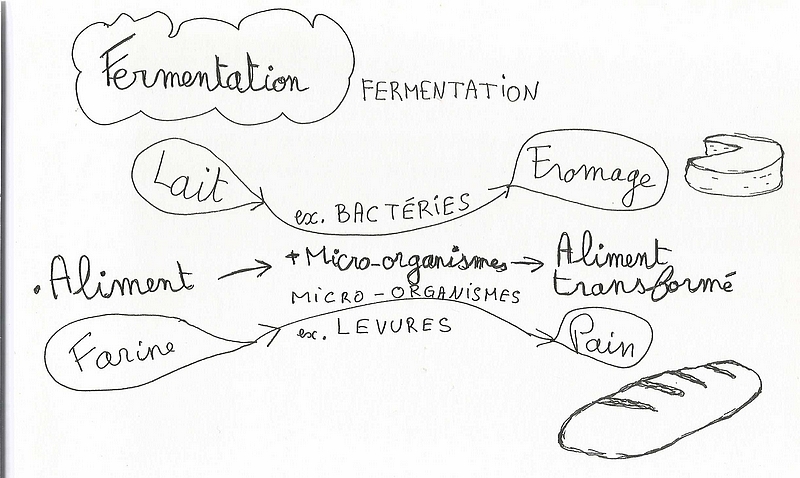 Fermentation
FERMENTATION
Lait
Fromage
ex. BACTÉRIES
. Aliment → + Micro-organismes → Aliment
transformé
MICRO-ORGANISMES
Farine
ex. LEVURES
Pain